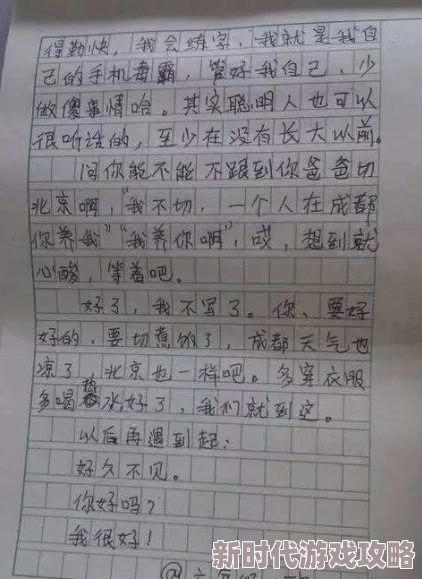 得勤快，我会练字，我就是我自
己的手机毒霸，管好我自己、少
做傻事情哈。其实聪明人也可以
很听话的，至少在没有长大以前。
问你能不能不跟到你爸爸切
北京啊，“我不切，一个人在成都
你养我”“我养你啊”，哎，想到就
心酸，等着吧。
好了，我不写了。你、要好
好的，要切煮饭了，成都天气也
凉了，北京也一样吧。多穿衣服
多喝热水好了，我们就到这。
以后再遇到起：
好久不见。
你好吗？
我很好！
新时代游戏攻略